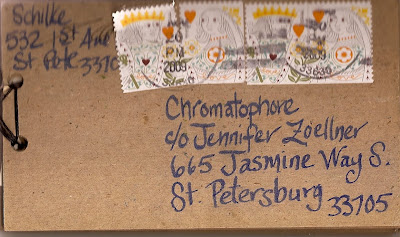 Schilke
532 1st Ave
St Pete 3370
PM
2009
Chromatophore
c/o Jennifer Zoellner
665 Jasmine Way S.
St. Petersburg 33705